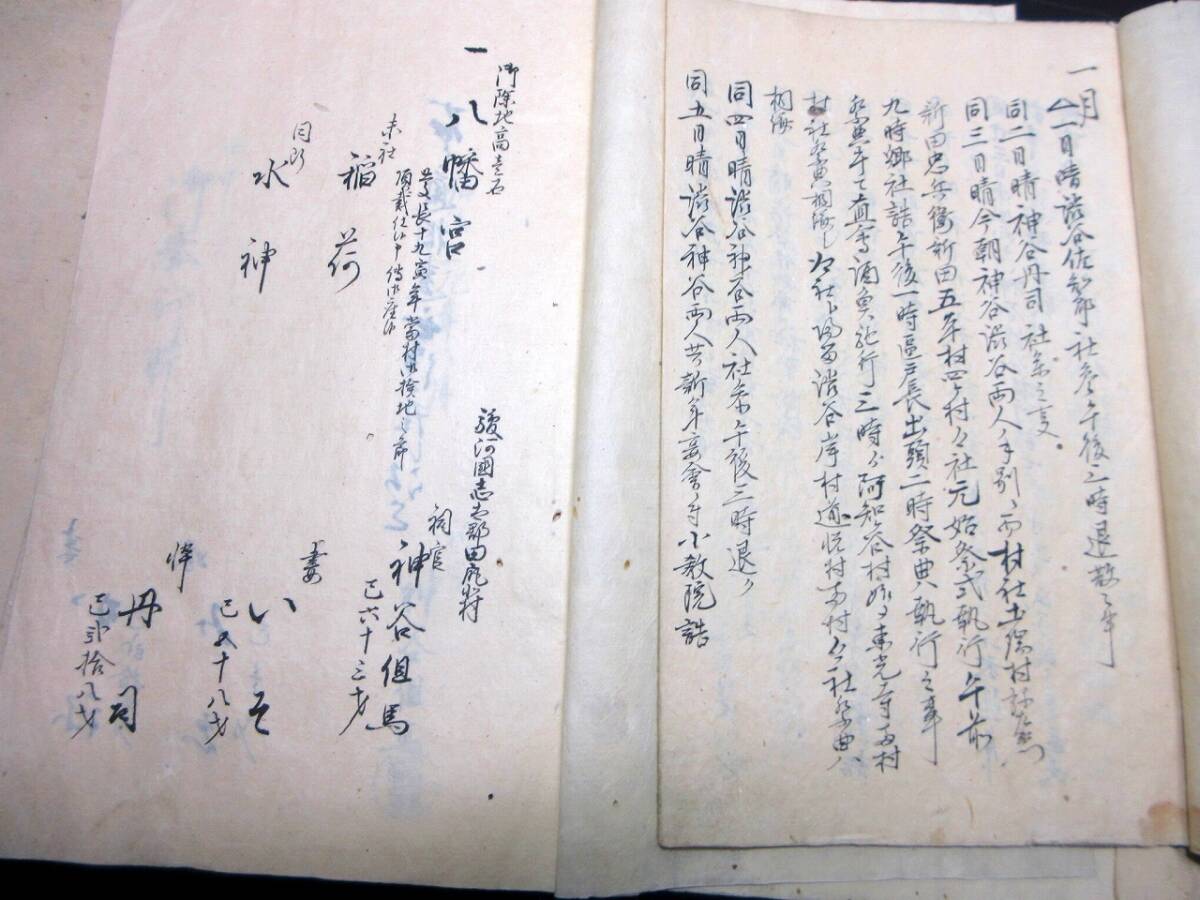 一月
一日晴渋谷佐知郎社参午後三時退散之事
同二日晴神谷丹司社参之事
同三日晴今朝神谷渋谷両人手別ニ而村社土瑞村
新田忠兵衛新田五年村四ヶ村々社元始祭式執行午前
九時郷社詣午後一時區戸長出頭二時祭典執行之事
祭典手て直会酒魚施行三時ゟ阿知谷村東光寺両村
村社祭典相済渋谷岸村道悦村両村々社祭典
相済
同四日晴渋谷神谷両人社参午後三時退ク
同五日晴渋谷神谷両人共新年宴会ニ付小教院詣
御除地高壱石
一八幡宮
慶長十九寅年當村御検地之節
頂戴仕候申傳御座候
末社
稲荷
同断
水神
駿河國志太郡田尻村
祠官
神谷但馬
巳六十三才
妻
いそ
巳五十八才
悴
丹司
巳弐拾八才